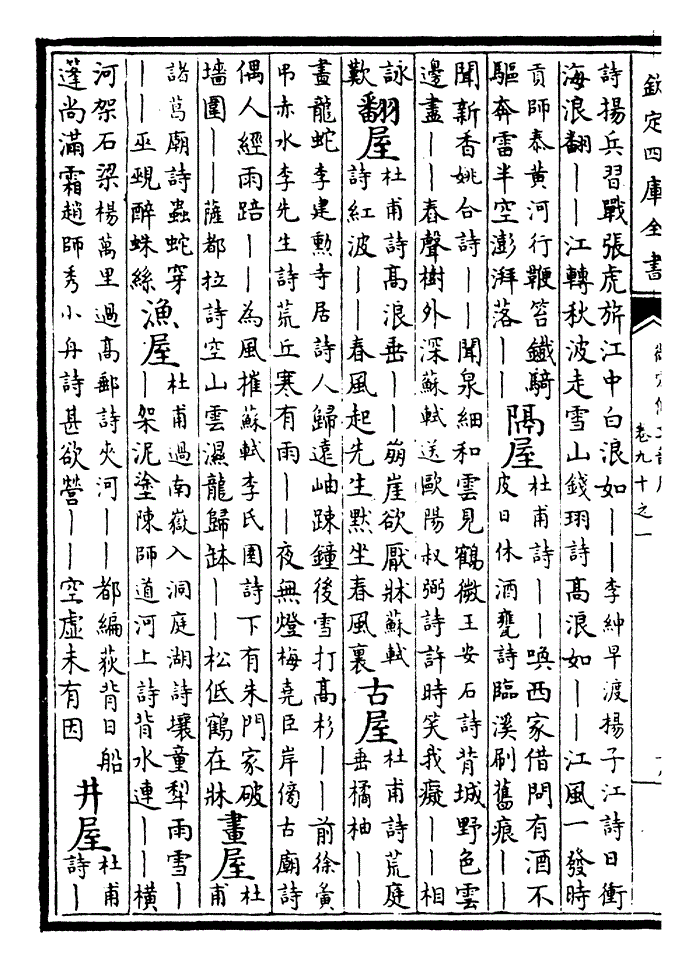 欽定四庫全書
卷九十之一
詩揚兵習戰張虎旂江中白浪如丨丨李紳早渡楊子江詩日衝
海浪翻丨丨江轉秋波走雪山錢珝詩高浪如丨丨江風一發時
貢師泰黄河行鞭笞鐵騎
驅奔雷半空澎湃落丨丨
隔屋
杜甫詩丨丨喚西家借問有酒不
皮日休酒甕詩臨溪刷舊痕丨丨
聞新香姚合詩丨丨聞泉細和雲見鶴微王安石詩背城野色雲
邊盡丨丨春聲樹外深蘇軾送歐陽叔弼詩許時笑我癡丨丨相
詠
歎
翻屋
杜甫詩高浪垂丨丨崩崖欲壓牀蘇軾
詩紅波丨丨春風起先生默坐春風裏
古屋
杜甫詩荒庭
垂橘柚丨丨
畫龍蛇李建勲寺居詩人歸遠岫踈鐘後雪打高杉丨丨前徐夤
弔赤水李先生詩荒丘寒有雨丨丨夜無燈梅堯臣岸傍古廟詩
偶人經雨踣丨丨為風摧蘇軾李氏園詩下有朱門家破
墻圍丨丨薩都拉詩空山雲濕龍歸鉢丨丨松低鶴在牀
畫屋
杜
甫
諸葛廟詩蟲蛇穿
丨丨巫覡醉蛛絲
漁屋
杜甫過南嶽入洞庭湖詩壤童犂雨雪丨
丨架泥塗陳師道河上詩背水連丨丨横
河架石梁楊萬里過高郵詩夾河丨丨都編荻背日船
蓬尚滿霜趙師秀小舟詩甚欲營丨丨空虛未有因
井屋
杜甫
詩丨